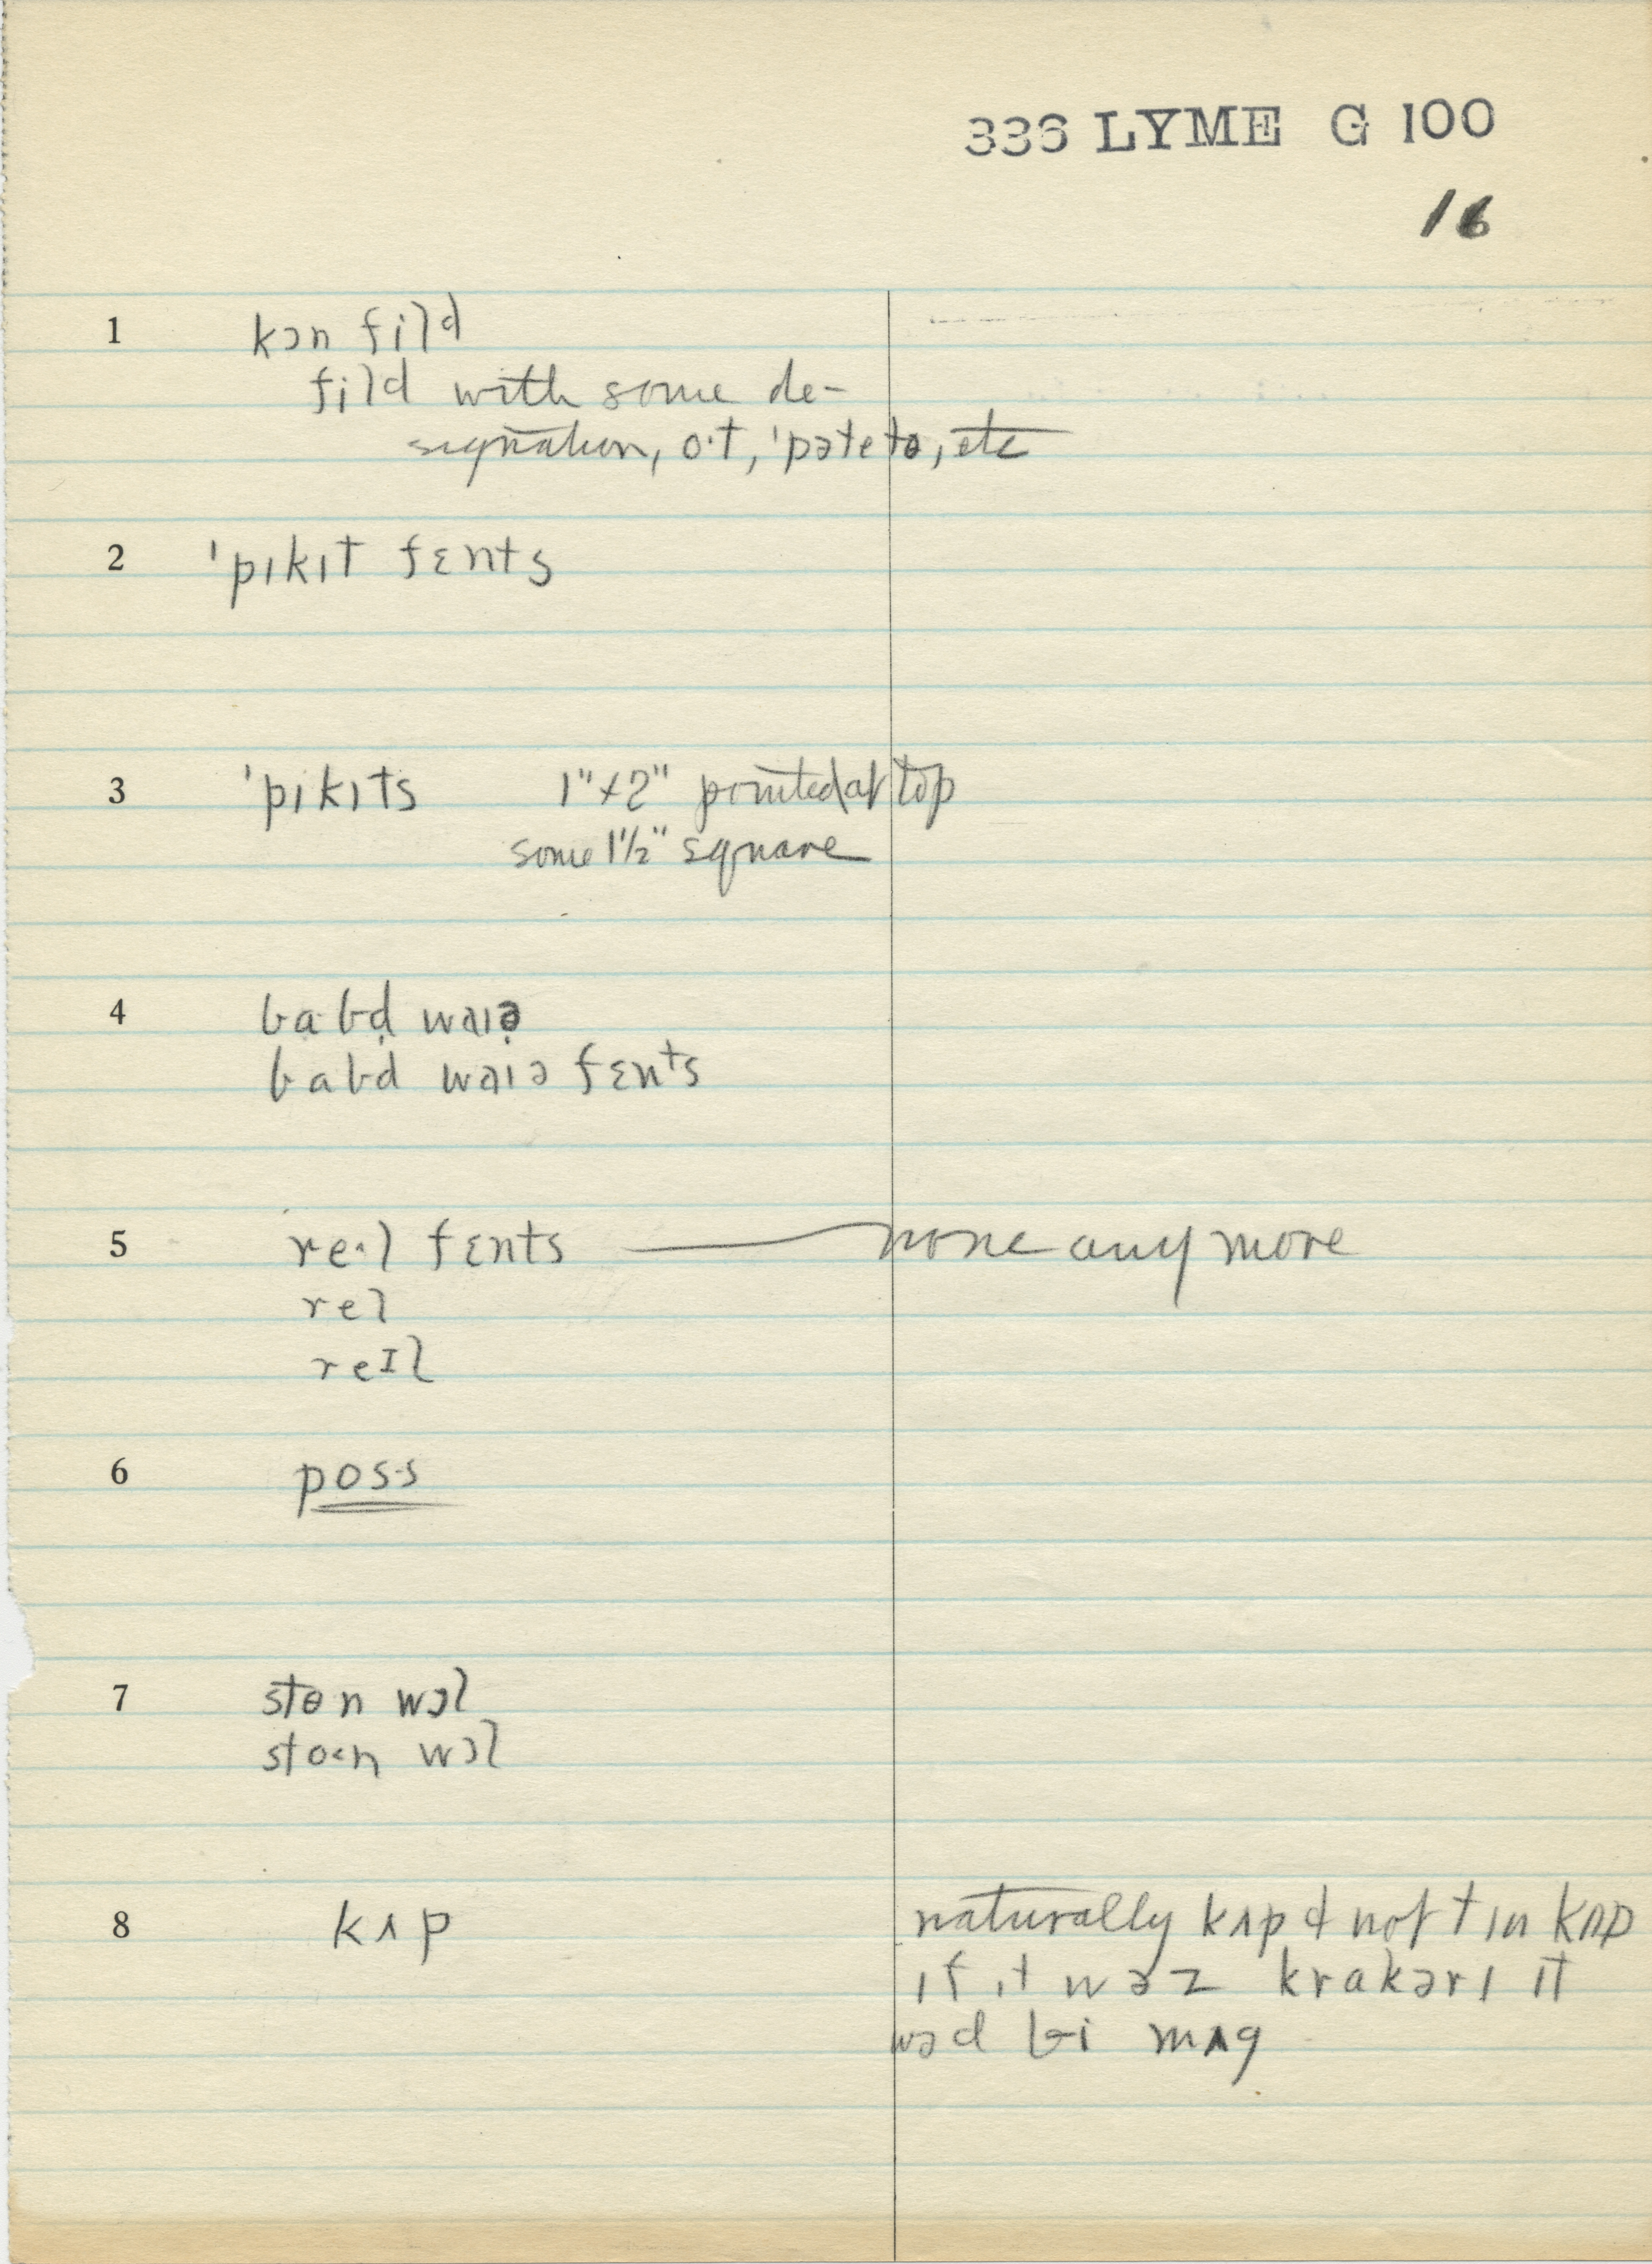 336 LYME G 100
16
1 kɔn fild
fild with some de-
signation, o·t, 'pəteto, etc
2 'pɪkɪt fɛnts
3 'pɪkɪts 1"×2" pointed at top
some 1½" square
4 babd waɪə
babd waɪə fɛnts
5 re·l fɛnts — none any more
rel
reɪl
6 pos·s
7 stɵn wɔl
stoən wɔl
8 kʌp naturally kʌp & not tɪn kʌp
ɪf ɪt wəz krakərɪ ɪt
wəd bi mʌg